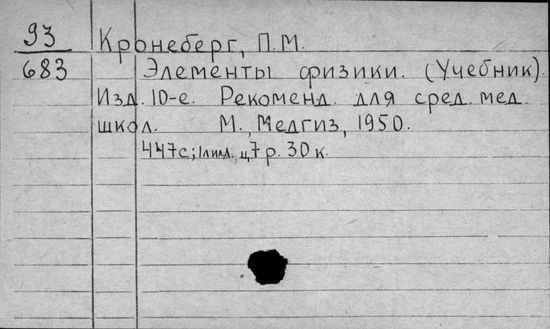 93 Кронеберг, П.М.
683 Элементы физики. (Учебник).
Изд. 10-е. Рекоменд. для сред. мед.
школ. М., Медгиз, 1950.
447с; 1 л. ил. ц. 7 р. 30 к.